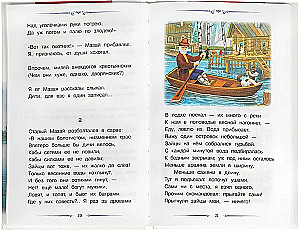 Над уголёчками руки погрею,
Да уж потом и палю по злодею!»
«Вот так охотник!» — Мазай прибавлял.
Я, признаюсь, от души хохотал.
Впрочем, милей анекдотов крестьянских
(Чем они хуже, однако, дворянских?)
Я от Мазая рассказы слыхал.
Дети, для вас я один записал...
2
Старый Мазай разболтался в сарае:
«В нашем болотистом, низменном крае
Впятеро больше бы дичи велось,
Кабы сетями её не ловили,
Кабы силками её не давили;
Зайцы вот тоже, — их жалко до слёз!
Только весенние воды нахлынут,
И без того они сотнями гинут, —
Нет! ещё мало! бегут мужики,
Ловят, и топят, и бьют их баграми.
Где у них совесть?.. Я раз за дровами
20
В лодке поехал — их много с реки
К нам в половодье весной нагоняет, —
Еду, ловлю их. Вода прибывает.
Вижу один островок небольшой —
Зайцы на нём собралися гурьбой.
С каждой минутой вода подбиралась
К бедным зверькам; уж под ними осталось
Меньше аршина земли в ширину,
Меньше сажени в длину.
Тут я подъехал: лопочут ушами,
Сами ни с места; я взял одного,
Прочим скомандовал: прыгайте сами!
Прыгнули зайцы мои, — ничего!
21